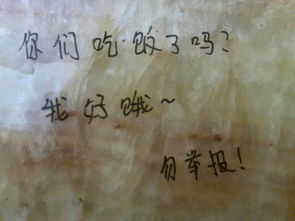 你们吃饭了吗?
我好饿~
勿举报!